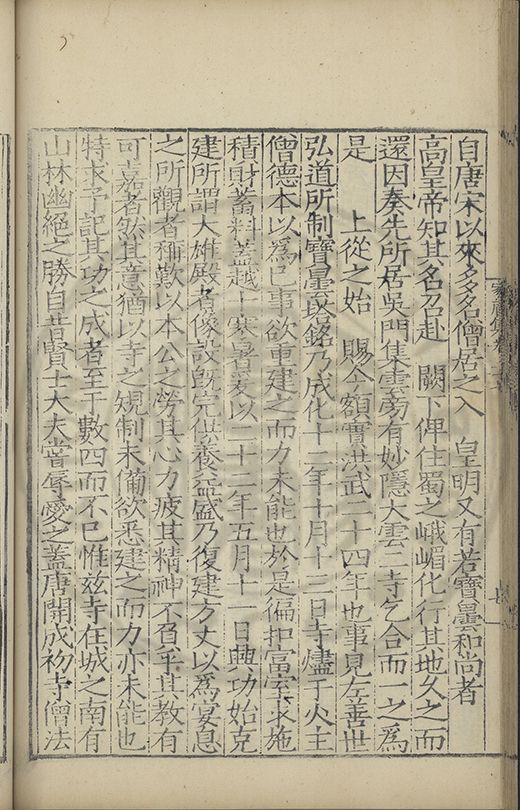 自唐宋以來多名僧居之入 皇明又有若寶曇和尚者
高皇帝知其名召赴 闕下俾住蜀之峨嵋化行其地久之而
還因奏先所居吳門集雲旁有妙隱大雲二寺乞合而一之爲
是 上從之始 賜今額實洪武二十四年也事見左善世
弘道所制寶曇塔銘乃成化十二年十月十三日寺燼于火主
僧德本以爲己事欲重建之而力未能也於是徧扣富室求施
積財蓄料蓋越 寒暑爰以二十二年五月十一日興功始克
建所謂大雄殿者像設既完供養益盛乃復建方丈以爲宴息
之所觀者稱歎以本公之勞其心力疲其精神不負乎其教有
可嘉者然其意猶以寺之規制未備欲悉建之而力亦未能也
特求予記其功之成者至于數四而不已惟茲寺在城之南有
山林幽絕之勝自昔賢士大夫嘗辱愛之蓋唐開成初寺僧法
家藏集卷